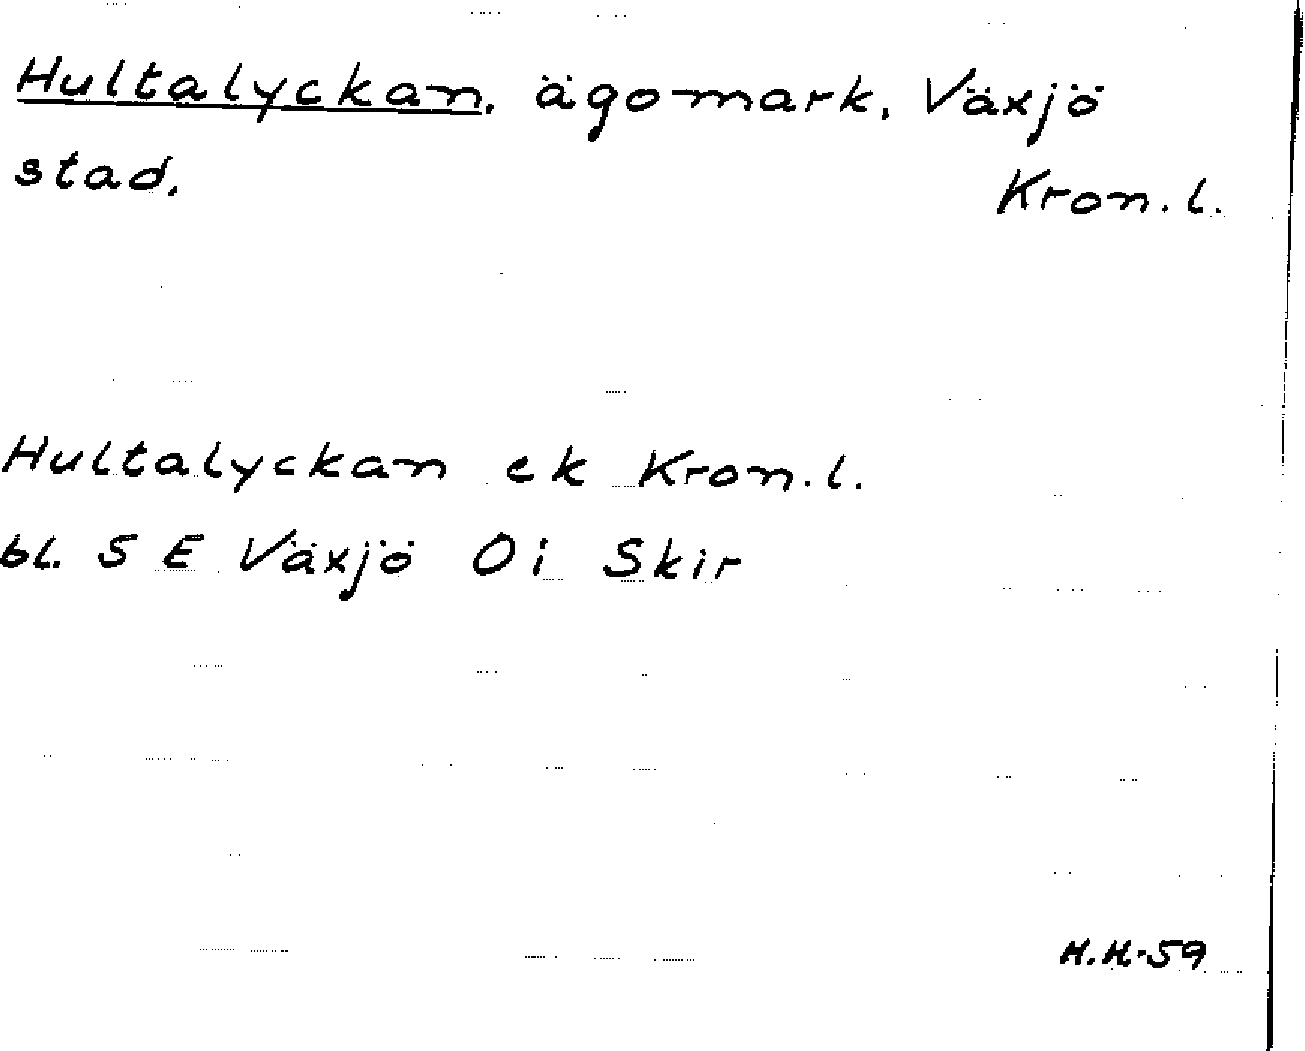 Hultalyckan, ägomark, Växjö
stad.
Kron.l.
Hultalyckan ek Kron.l.
bl. 5 E Växjö 0 i Skir
H.H-59